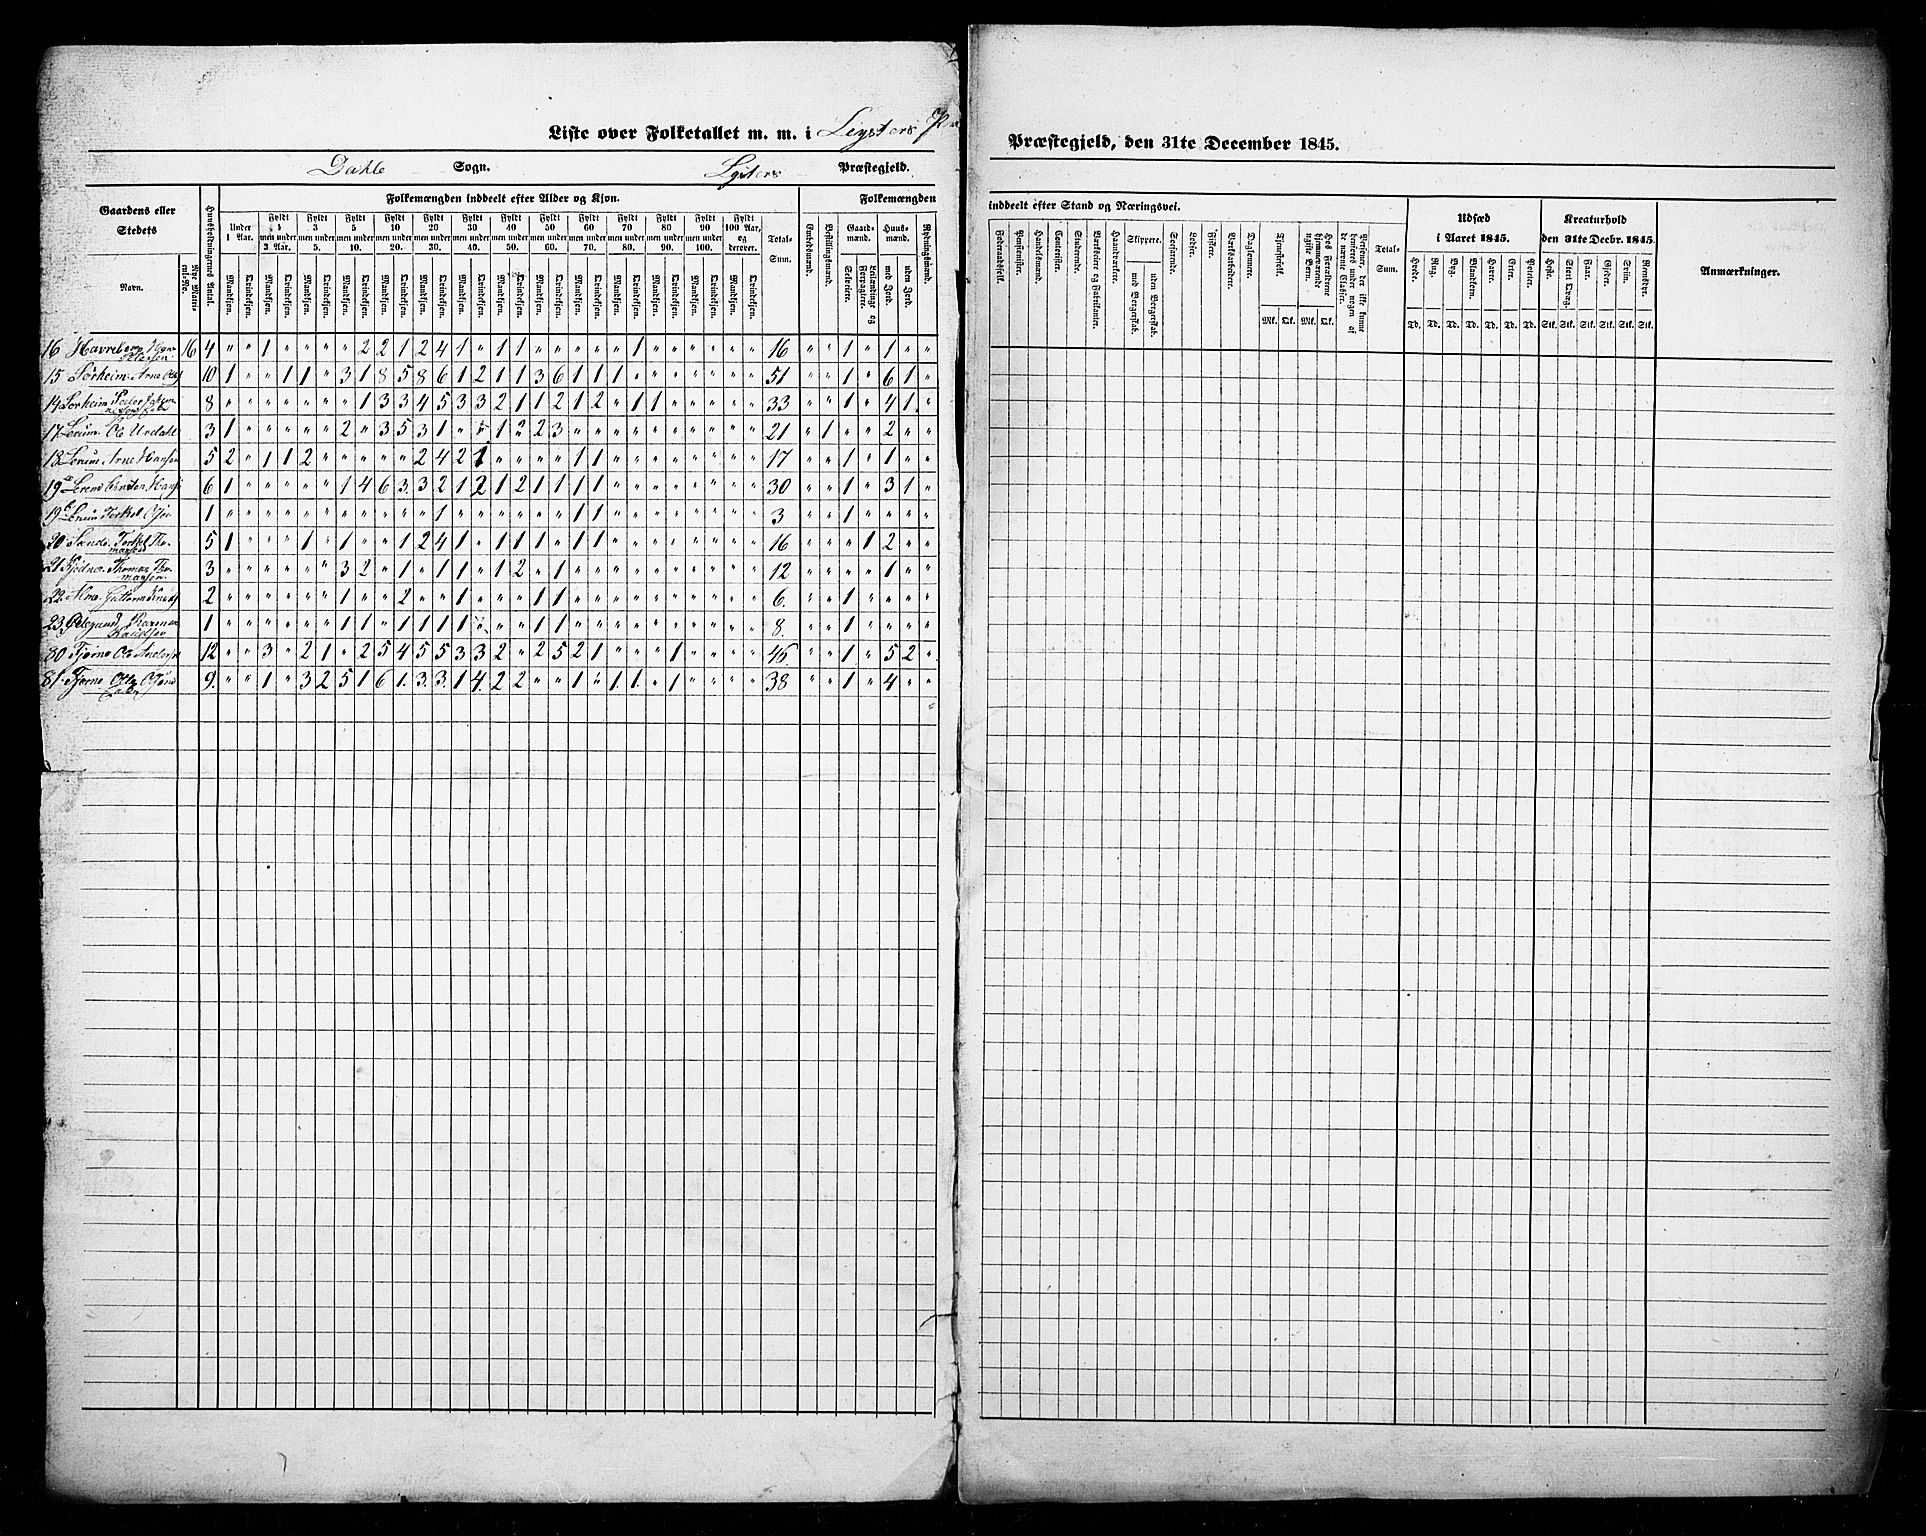 Liste over Folketallet m. m. i Lysters
Præstegjeld, den 31te December 1845.
Dahle Sogn. Lysters Præstegjeld.
Gaardens eller Stedets Navn.
Nye Matricul-No.
Huusholdningernes Antal.
Folkemængden inddeelt efter Alder og Kjøn.
Under 1 Aar.
Fyldt 1 men under 3 Aar.
Fyldt 3 men under 5.
Fyldt 5 men under 10.
Fyldt 10 men under 20.
Fyldt 20 men under 30.
Fyldt 30 men under 40.
Fyldt 40 men under 50.
Fyldt 50 men under 60.
Fyldt 60 men under 70.
Fyldt 70 men under 80.
Fyldt 80 men under 90.
Fyldt 90 men under 100.
Fyldt 100 Aar, og derover.
Mandkjøn. Qvindekjøn.
Total-Sum.
Folkemængden inddeelt efter Stand og Næringsvei.
Embedsmænd.
Bestillingsmænd.
Gaardmænd.
Selveiere.
Leilændinge og Forpagtere.
Huusmænd.
med Jord.
uden Jord.
Rydningsmænd.
Føderaadsfolk.
Pensionister.
Handelsmænd.
Contorister.
Studerende.
Værkseiere og Fabrikanter.
Haandværkere.
Skippere.
med Borgerskab.
uden Borgerskab.
Søefarende.
Lodser.
Fiskere.
Værksarbeidere.
Daglønnere.
Tjenestefolk.
Mk. Qk.
Hos Forældrene hjemmeværende ugifte Børn.
Mk. Qk.
Personer, der ikke kunne henføres under nogen af de nævnte Classer.
Total-Sum.
Udsæd i Aaret 1845.
Hvede. Rug. Byg. Blandkorn. Havre. Erter. Poteter.
Td. Td. Td. Td. Td. Td. Td.
Kreaturhold den 31te Decbr. 1845.
Heste. Stort Qvæg. Faar. Gjeder. Sviin. Rensdyr.
Stk. Stk. Stk. Stk. Stk. Stk.
Anmærkninger.
16 Havreberg 16 4 " " 1 " " " " 2 2 1 2 4 1 " 1 1 " " " " " 1 " " " " " " 16 " " 1 " 1 " "
15 Sørheim Arne 10 1 " " 1 1 " 3 1 8 5 8 6 1 2 1 1 3 6 1 1 1 " " " " " " " 51 " " 1 " 6 1 "
14 Sørheim Peder 8 " " " " " " " 1 3 3 4 5 3 3 2 1 1 2 1 2 " 1 1 " " " " " 33 " " 1 " 4 1 "
17 Lerum Ole Urdahl 3 1 " " " " " 2 " 3 5 3 1 " " 1 2 2 3 " " " " " " " " " " 21 " 1 " " 2 " "
18 Lerum Arne Hansen 5 2 " 1 1 2 " " " " " 2 4 2 1 " " " " 1 1 " " " " " " " " 17 " " 1 " 1 " "
19 6 1 " " " " " 1 4 6 3 3 2 1 2 1 2 1 1 1 1 " " " " " " " " 30 " " 1 " 3 1 "
19 Lerum Torkel 1 " " " " " " " " " " " 1 " " " " " " 1 1 " " " " " " " " 3 " " 1 " " " "
20 Sande Torkel Thomassen 5 1 " " " 1 " 1 " " 1 2 4 1 " 1 1 1 " 1 1 " " " " " " " " 16 " " " 1 2 " "
21 Thomas Thomassen 3 " " " " " " 3 2 " 1 " 1 1 " 1 2 " 1 " " " " " " " " " " 12 " " " " 1 " "
22 Alme Guttorm 2 " " " " " " 1 " " 2 " " 1 " " " 1 1 " " " " " " " " " " 6 " " 1 " " " "
23 Knudsen 1 " " " " " " 1 1 " 1 1 1 1 " " " 1 1 " " " " " " " " " " 8 " " 1 " " " "
80 Fjørne Ole 12 " " 3 " 2 1 " 2 5 4 5 5 3 3 2 " 2 5 2 1 " " " 1 " " " " 46 " " 1 " 5 2 "
81 Fjørne 9 " " 1 " 3 2 5 1 6 1 3 3 1 4 2 2 " " 1 " 1 1 " 1 " " " " 38 " " 1 " 4 " "